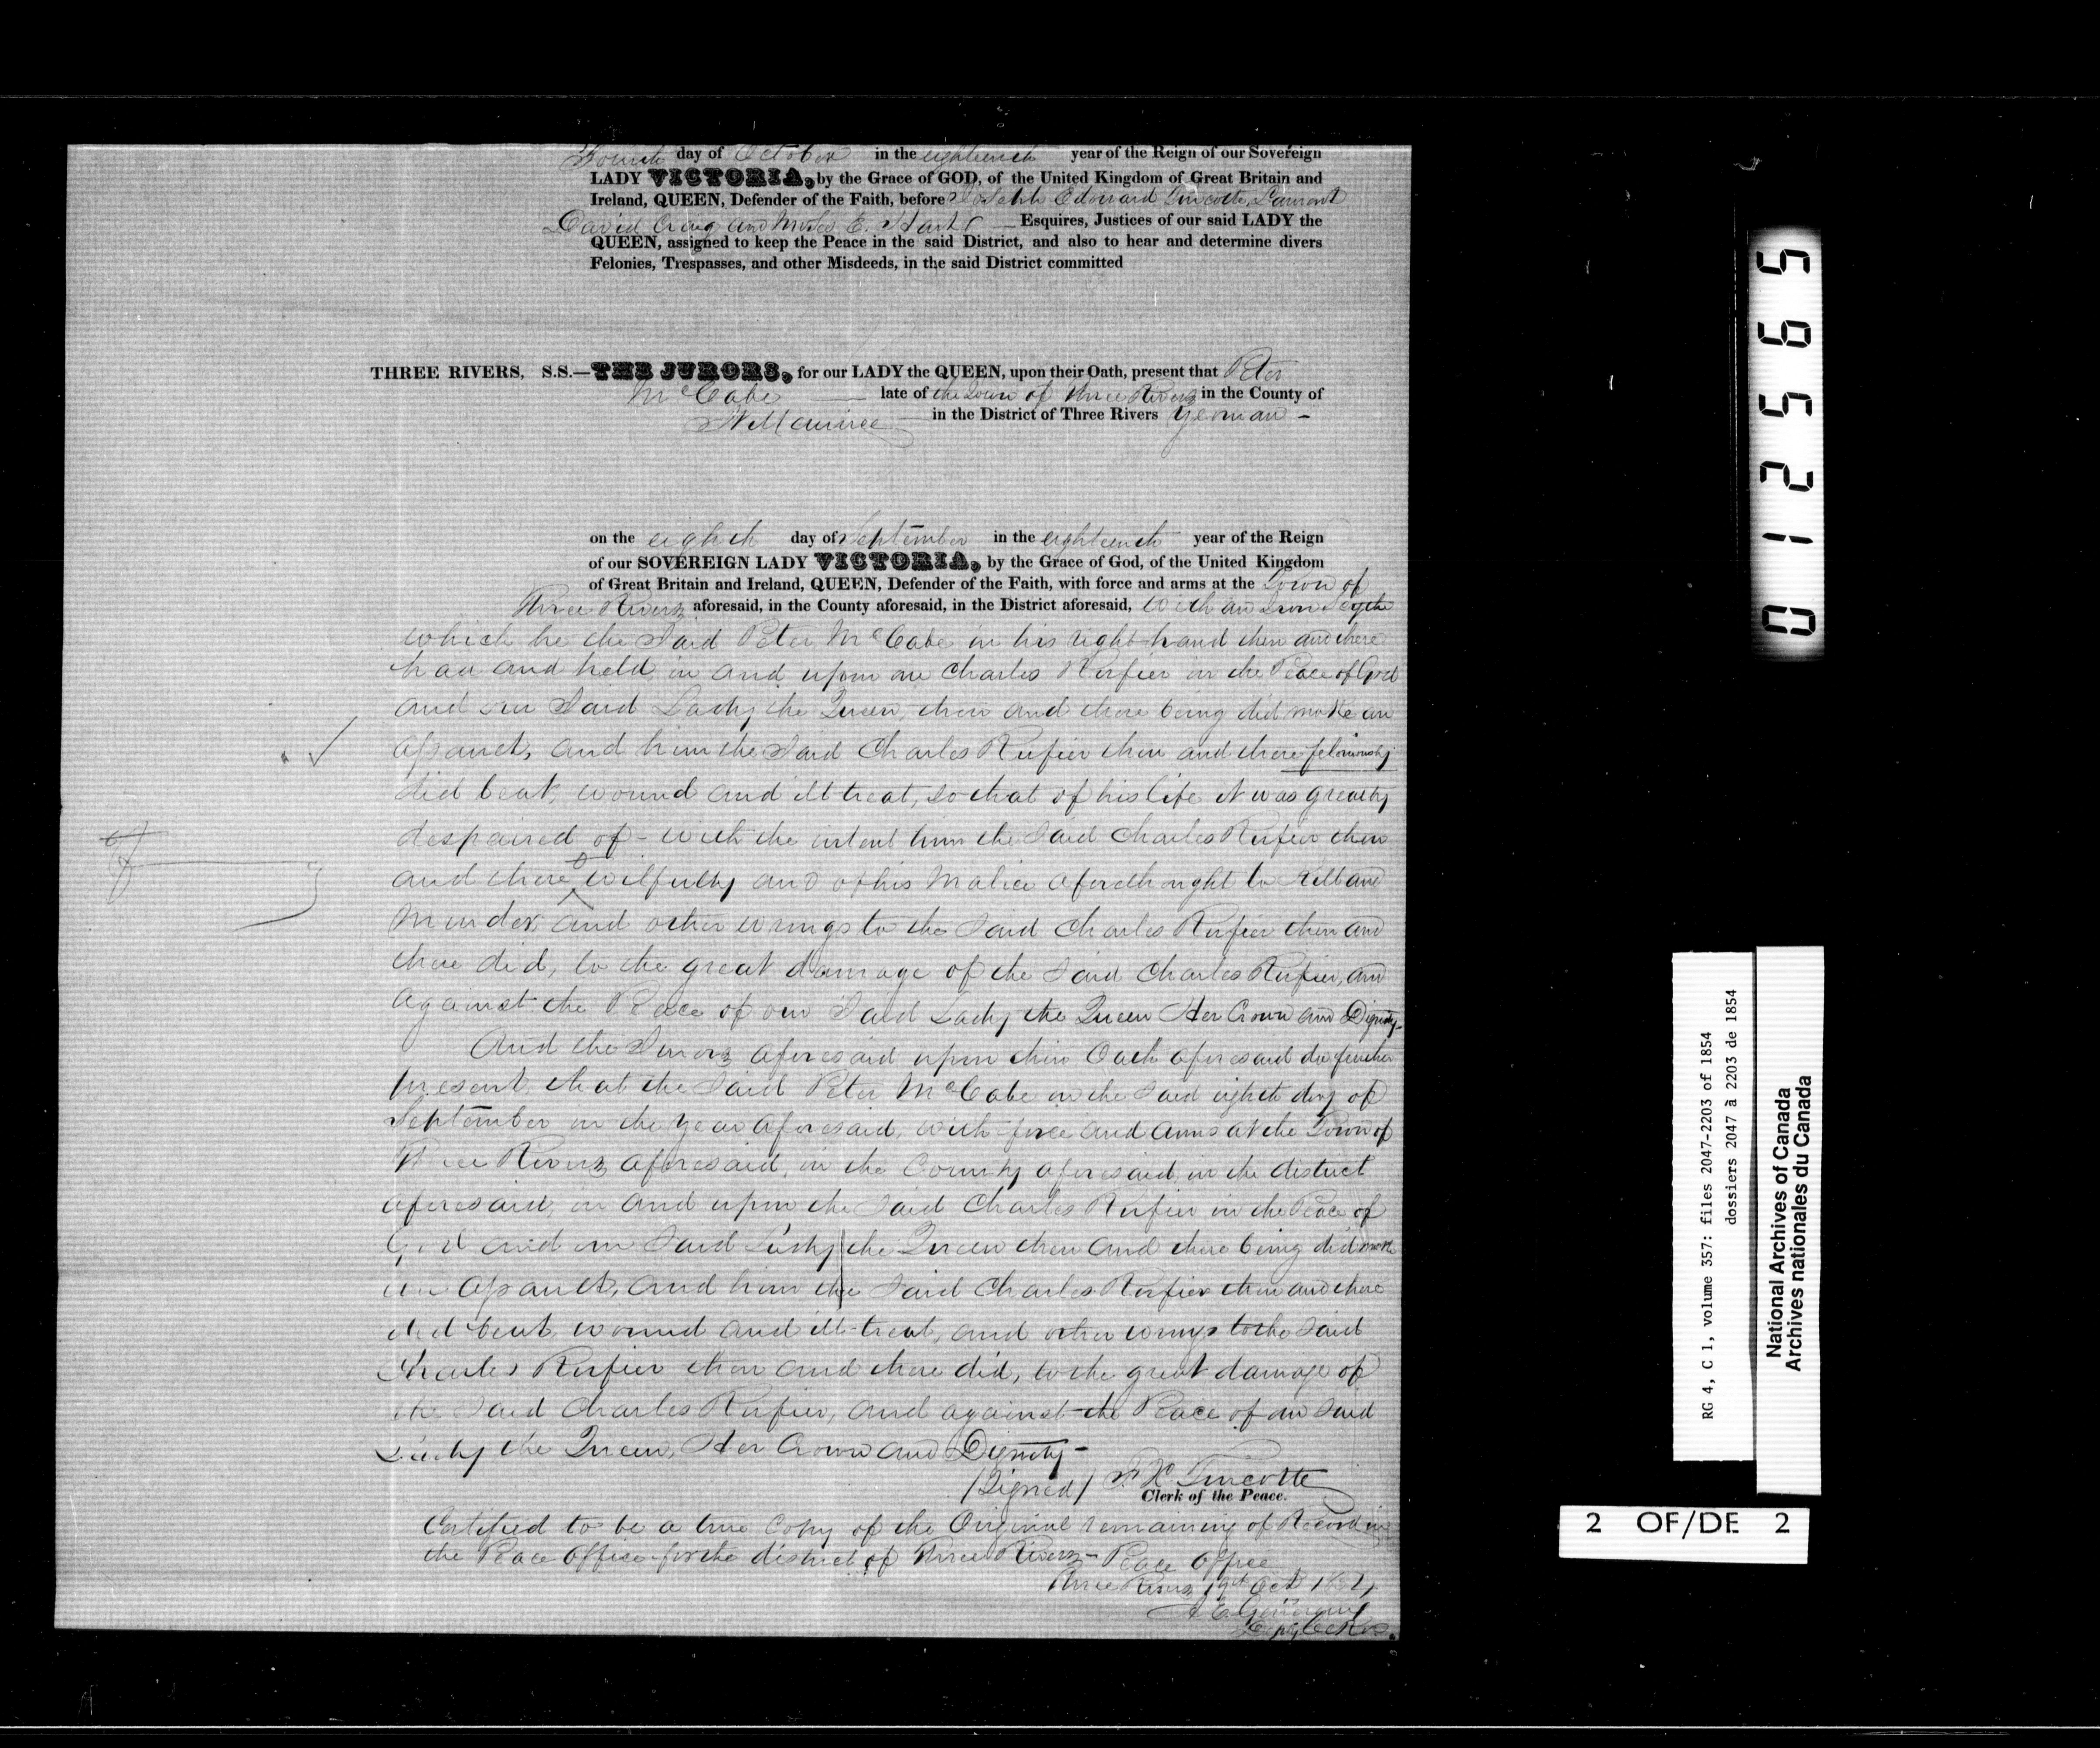 Fourth day of October in the eighteenth year of the Reign of our Sovereign
LADY VICTORIA, by the Grace of GOD, of the United Kingdom of Great Britain and
Ireland, QUEEN, Defender of the Faith, before Joseph Edouard Turcotte, Laurent
David Craig and Moses E. Hart — Esquires, Justices of our said LADY the
QUEEN, assigned to keep the Peace in the said District, and also to hear and determine divers
Felonies, Trespasses, and other Misdeeds, in the said District committed
THREE RIVERS, S.S.—THE JURORS, for our LADY the QUEEN, upon their Oath, present that Peter
McCabe — late of the Town of Three Rivers in the County of
St Maurice — in the District of Three Rivers Yeoman -
on the eighth day of September in the eighteenth year of the Reign
of our SOVEREIGN LADY VICTORIA, by the Grace of God, of the United Kingdom
of Great Britain and Ireland, QUEEN, Defender of the Faith, with force and arms at the Town of
Three Rivers aforesaid, in the County aforesaid, in the District aforesaid, with an Iron Scythe
which he the Said Peter McCabe in his right hand then and there
had and held, in and upon one Charles Rufier in the Peace of God
and our Said Lady the Queen, then and there being did make an
assault, and him the Said Charles Rufier then and there feloniously
did beat, wound and ill treat, so that of his life it was greatly
despaired of - with the intent him the Said Charles Rufier then
and there wilfully and of his Malice aforethought to Kill and
Murder, and other wrongs to the Said Charles Rufier then and
there did, to the great damage of the Said Charles Rufier, and
against the Peace of our Said Lady the Queen Her Crown and Dignity-
And the Jurors aforesaid upon their Oath aforesaid do further
present, that the Said Peter McCabe on the Said eighth day of
September in the Year aforesaid, with force and arms at the Town of
Three Rivers aforesaid, in the County aforesaid, in the district
aforesaid, in and upon the Said Charles Rufier in the Peace of
God and our Said Lady the Queen then and there being did make
an assault, and him the Said Charles Rufier then and there
did beat, wound and ill-treat, and other wrongs to the Said
Charles Rufier then and there did, to the great damage of
the Said Charles Rufier, and against the Peace of our Said
Lady the Queen, Her Crown and Dignity -
/Signed/ F. X. Turcotte
Clerk of the Peace.
Certified to be a true Copy of the Original remaining of Record in
the Peace Office for the district of Three Rivers - Peace Office
Three Rivers 19th Oct 1854
Depy Clk
012565
RG 4, C 1, volume 357: files 2047-2203 of 1854
dossiers 2047 à 2203 de 1854
National Archives of Canada
Archives nationales du Canada
2 OF/DE 2